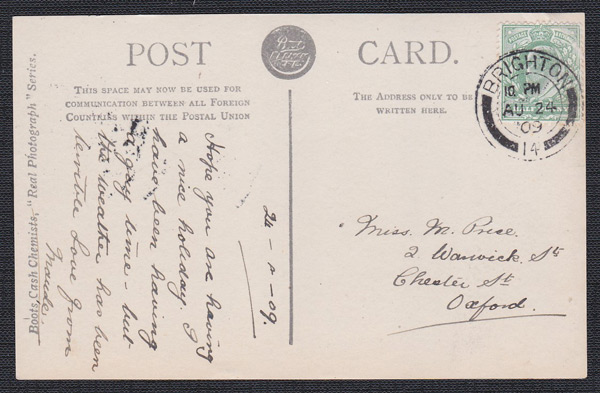 POST CARD.
THIS SPACE MAY NOW BE USED FOR
COMMUNICATION BETWEEN ALL FOREIGN
COUNTRIES WITHIN THE POSTAL UNION
THE ADDRESS ONLY TO BE
WRITTEN HERE.
BRIGHTON
10 PM
AU 24
09
14
Boots Cash Chemists, "Real Photograph" Series.
24-8-09.
Hope you are having
a nice holiday. I
have been having
a gay time - but
the weather has been
terrible Love from
Maude
Miss. M. Price.
2 Warwick St
Chester St
Oxford.